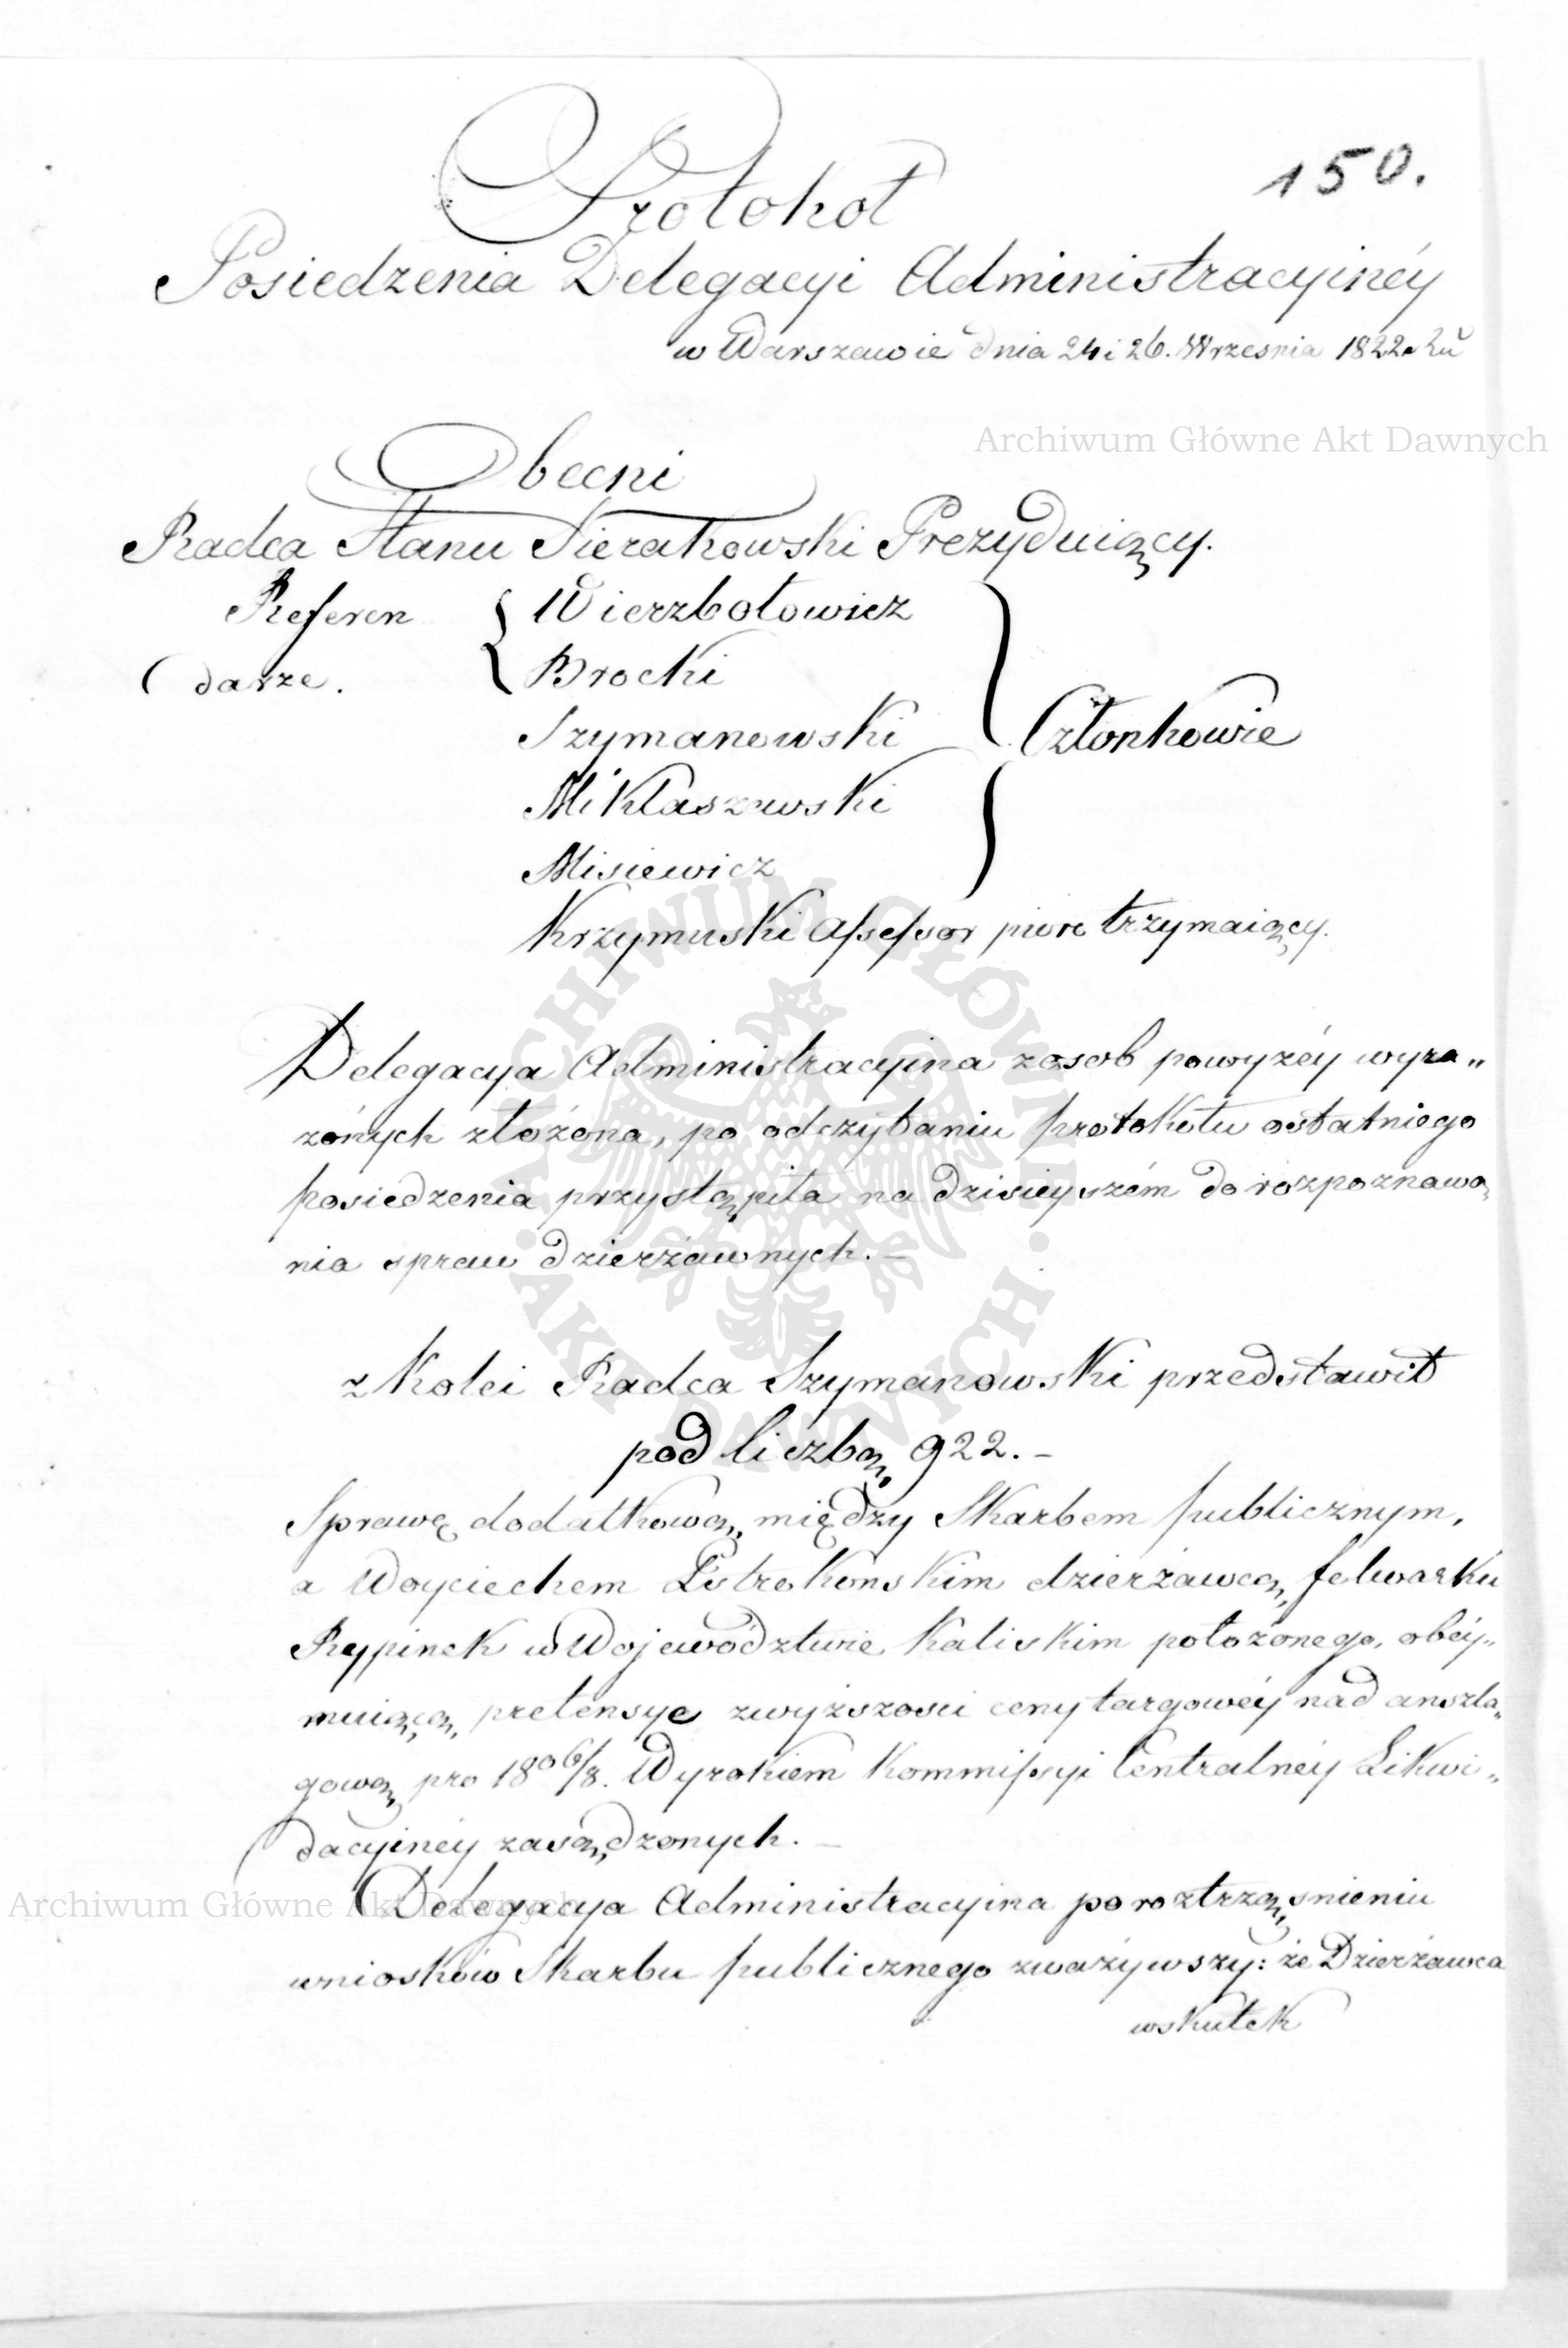 150.
Protokoł
Posiedzenia Delegacyi Administracyinéy
w Warszawie dnia 24 i 26. Wrzesnia 1822. Ru
Archiwum Główne Akt Dawnych
Obecni
Radca Stanu Sierakowski Prezyduiący.
Referen { Wierzbołowicz
darze. Brocki
Szymanowski } Członkowie
Mikłaszewski
Misiewicz
Krzymuski Assessor pioro trzymaiący.
Delegacya Administracyina z osob powyżéy wyra„
żónych złożóna, po odczytaniu protokołu ostatniego
posiedzenia przystąpiła na dzisieyszém do rozpoznawa„
nia spraw dzierżawnych. –
z Kolei Radca Szymanowski przedstawił
pod liczbą 922. –
Sprawę dodatkową, między Skarbem publicznym,
a Woyciechem Pstrokonskim dzierżawcą, folwarku
Rypinek w Województwie Kaliskim położonego, obéy„
muiącą, pretensye zwyższosci ceny targowéy nad anszla„
gową pro 1806/8. Wyrokiem Kommissyi Centralnéy Likwi„
dacyinéy zasądzonych. –
Archiwum Główne Akt Dawnych
Delegacya Administracyina po roztrząsnieniu
wniosków Skarbu publicznego zważywszy: że Dzierżawca
wskutek
ARCHIWUM GŁÓWNE · AKT DAWNYCH ·